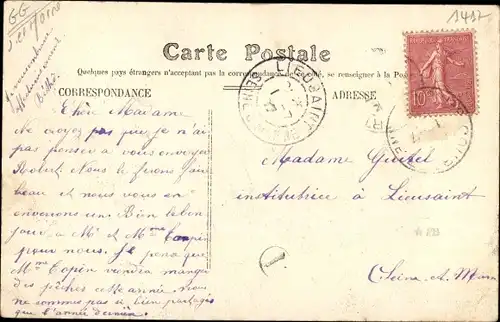 GG
1412
Carte Postale
Quelques pays étrangers n'acceptant pas la correspondance se renseigner à la Poste
CORRESPONDANCE
ADRESSE
LIEUSAINT
10
Chère Madame
Ne croyez pas que je n'ai
pas penser a vous envoyer
Robert. Nous le ferons
beau et nous vous en
enverrons un. Bien le bon
jour, a Mr et Mme
pour nous. Je pense que
Mme Copin viendra manger
des pêches cette année. Nous
ne sommes pas si bien partagés
que l'année dernière
Madame Guitel
institutrice à Lieusaint
Seine et Marne
1